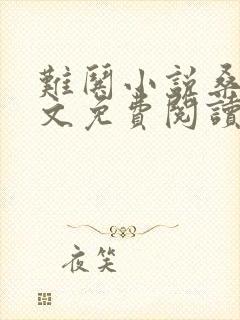 難鬨小説桑
文免費閱讀
夜笑